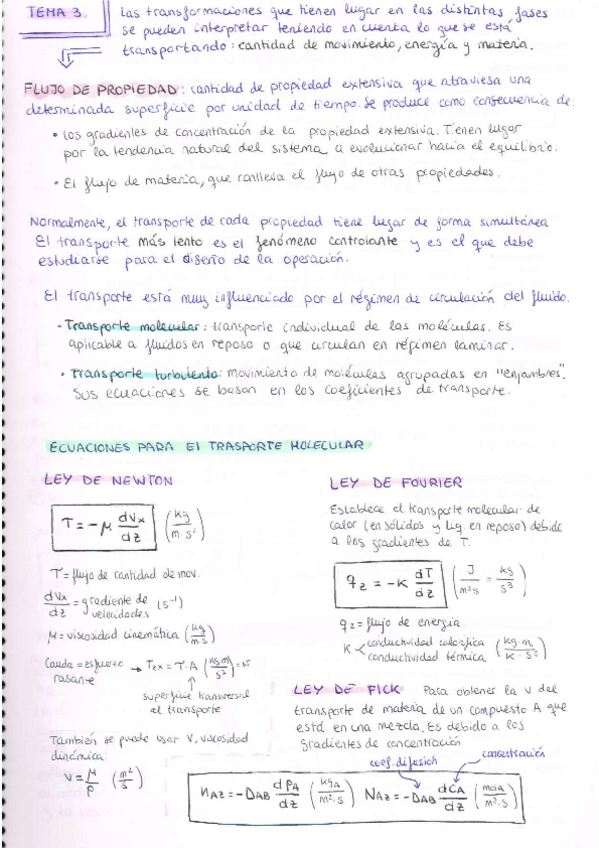 TEMA 3. Las transformaciones que tienen lugar en las distintas fases
se pueden interpretar teniendo en cuenta lo que se está
transportando: cantidad de movimiento, energía y materia.
FLUJO DE PROPIEDAD: cantidad de propiedad extensiva que atraviesa una
determinada superficie por unidad de tiempo. Se produce como consecuencia de:
• Los gradientes de concentración de la propiedad extensiva. Tienen lugar
por la tendencia natural del sistema a evolucionar hacia el equilibrio.
• El flujo de materia, que conlleva el flujo de otras propiedades.
Normalmente, el transporte de cada propiedad tiene lugar de forma simultánea
El transporte más lento es el fenómeno controlante y es el que debe
estudiarse para el diseño de la operación.
El transporte está muy influenciado por el régimen de circulación del fluido.
- Transporte molecular: transporte individual de las moléculas. Es
aplicable a fluidos en reposo o que circulan en régimen laminar.
• Transporte turbulento: movimiento de moléculas agrupadas en "enjambres".
Sus ecuaciones se basan en los coeficientes de transporte.
ECUACIONES PARA El TRASPORTE MOLECULAR
LEY DE NEWTON
τ = -μ dvx/dz (kg/m·s²)
τ = flujo de cantidad de mov.
dvx/dz = gradiente de velocidades (s⁻¹)
μ = viscosidad cinemática (kg/m·s)
→ τzx = τ·A (kg·m/s²) = N
rasante
superficie transversal
al transporte
También se puede usar ν, viscosidad
dinámica:
ν = μ/ρ (m²/s)
LEY DE FOURIER
Establece el transporte molecular de
calor (en sólidos y líq. en reposo) debido
a los gradientes de T.
qz = -K dT/dz (J/m²s = kg/s³)
qz = flujo de energía
K < conductividad calorífica
conductividad térmica (kg·m/K·s³)
LEY DE FICK Para obtener la v del
transporte de materia de un compuesto A que
está en una mezcla. Es debido a los
gradientes de concentración
coef. difusión concentración
nAz = -DAB dρA/dz (kgA/m²·s) NAz = -DAB dCA/dz (molA/m²·s)